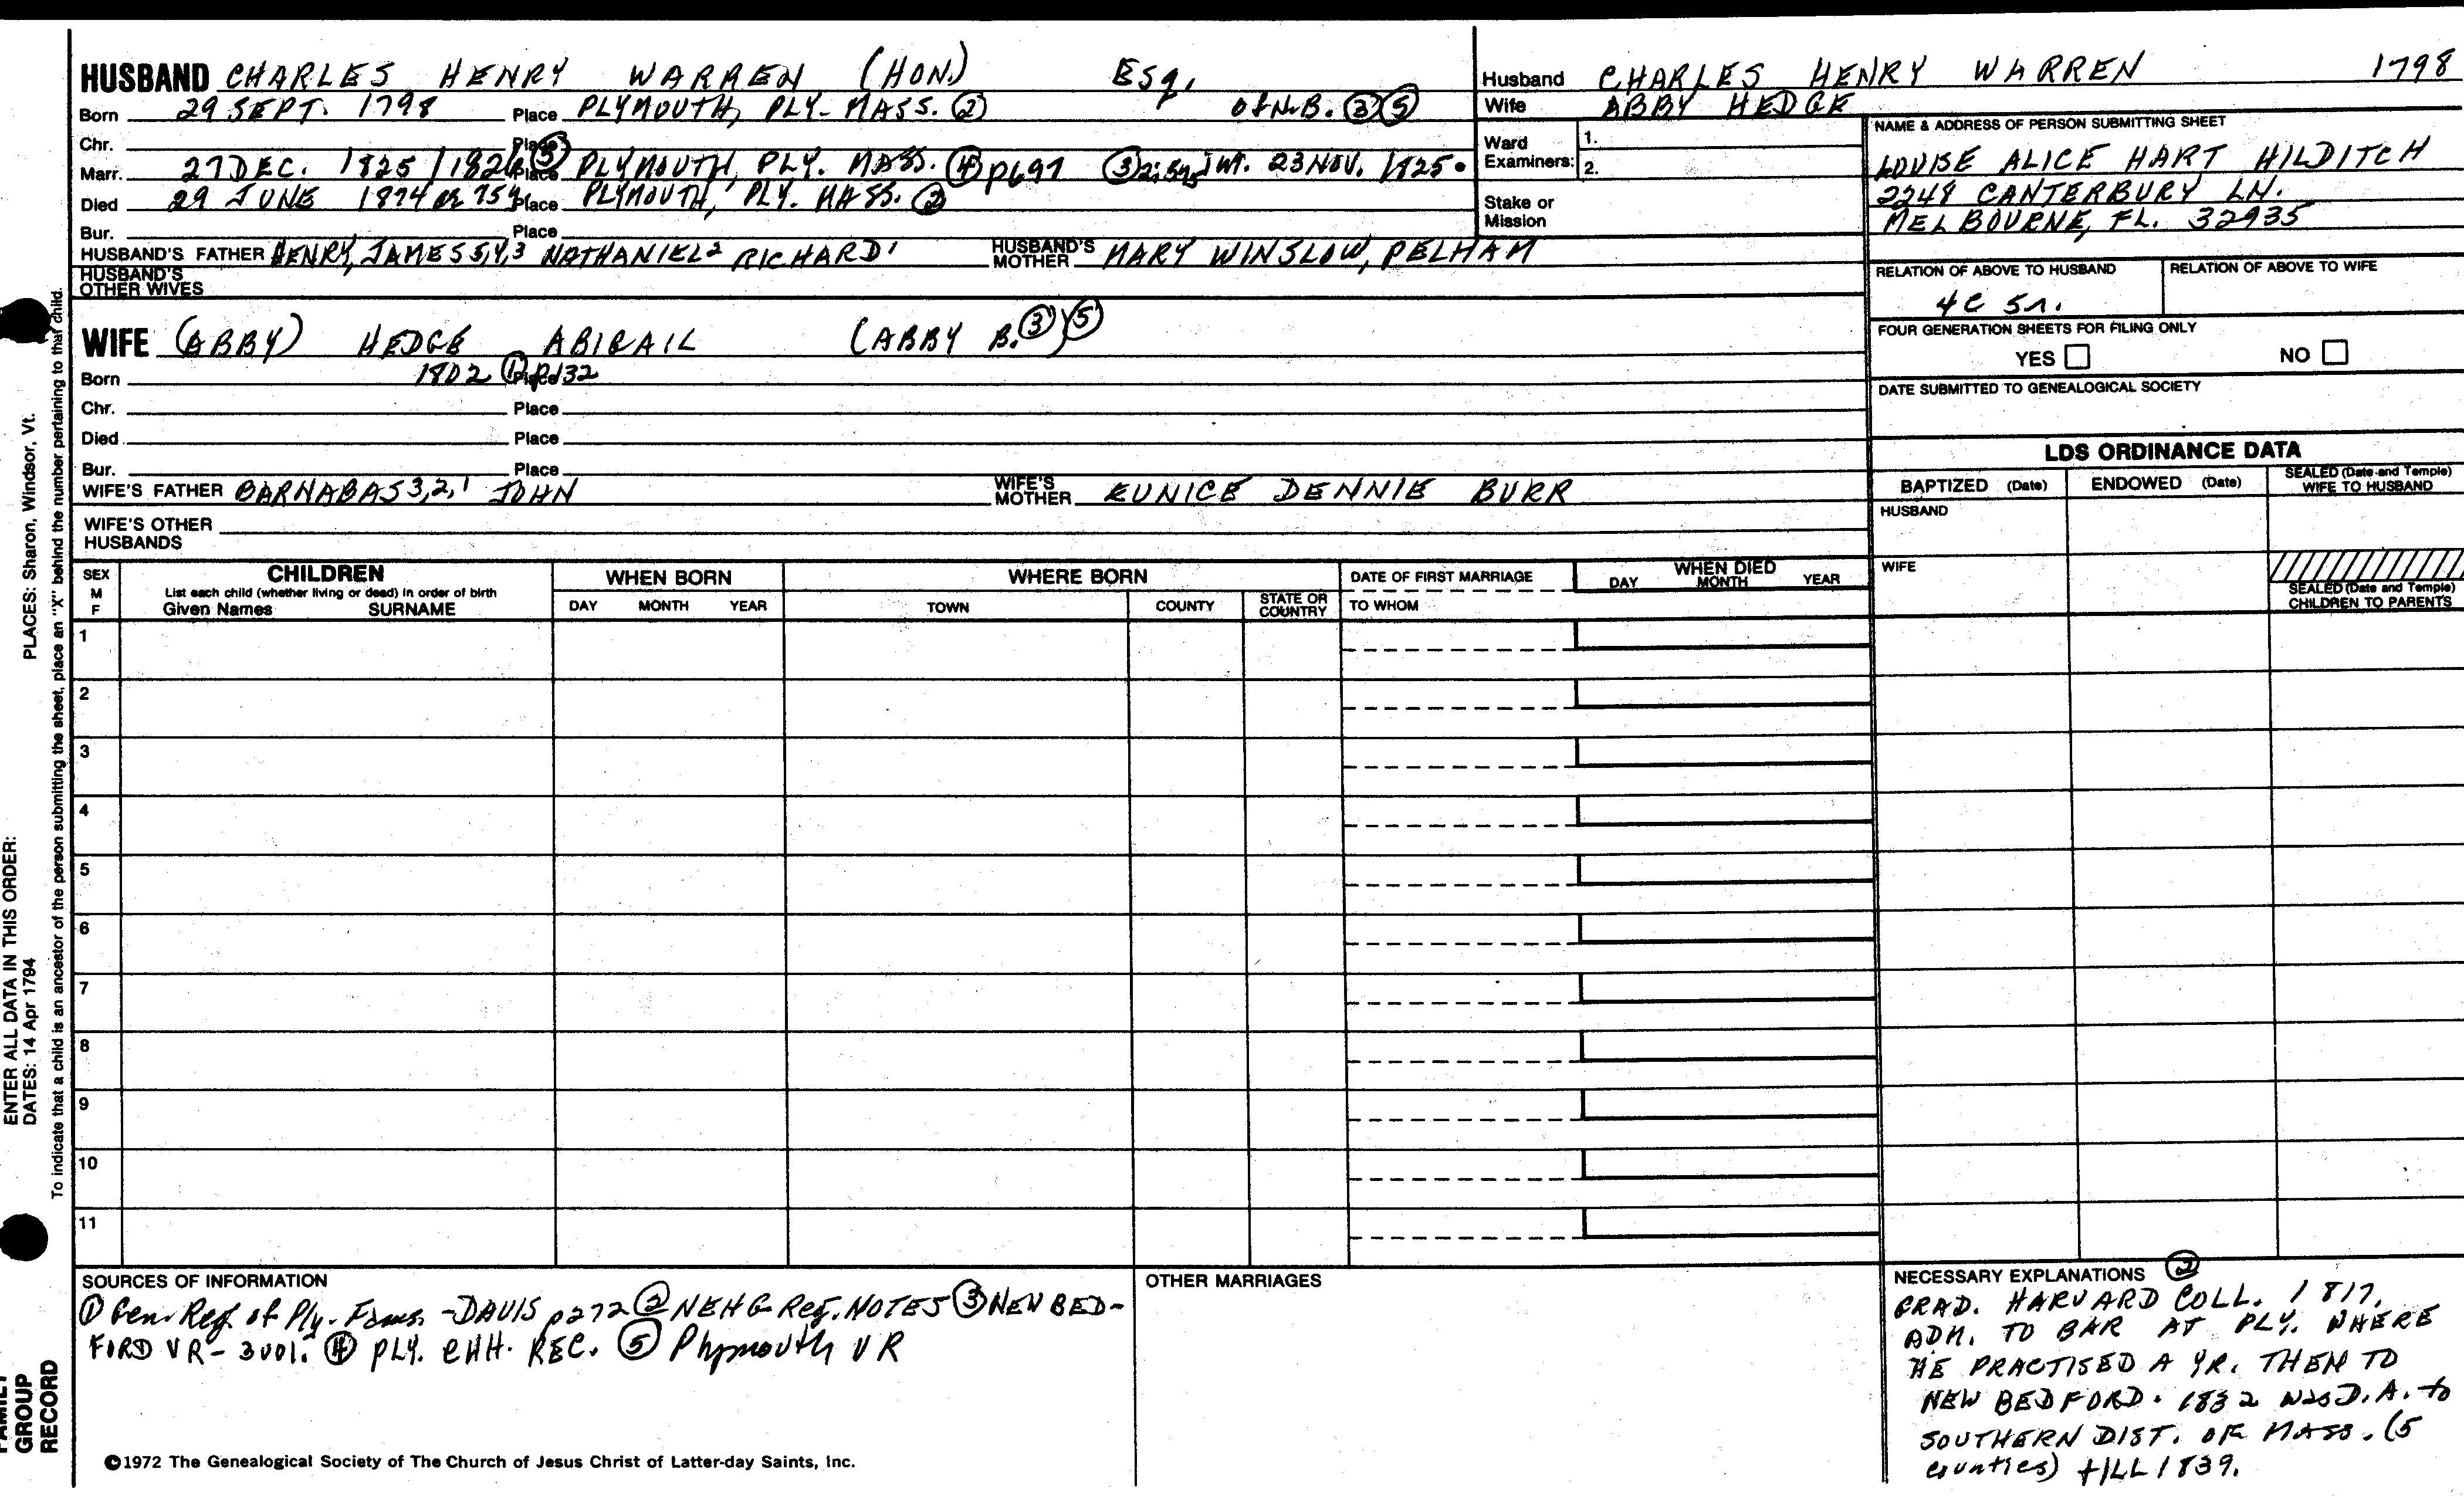 HUSBAND CHARLES HENRY WARREN (HON.) ESq.
Born 29 SEPT. 1798 Place PLYMOUTH, PLY. MASS. ② of N.B. ③⑤
Chr. Place
Marr. 27 DEC. 1825 / 1826 ⑤ Place PLYMOUTH, PLY. MASS. ④ p697 ③ 2:591 int. 23 NOV. 1825.
Died 29 JUNE 1874 or 75 Place PLYMOUTH, PLY. MASS. ②
Bur. Place
HUSBAND'S FATHER HENRY, JAMES 5,4,3 NATHANIEL 2 RICHARD 1 HUSBAND'S MOTHER MARY WINSLOW, PELHAM
HUSBAND'S OTHER WIVES
WIFE (ABBY) HEDGE ABIGAIL (ABBY B. ③) ⑤
Born 1802 ① p132 Place
Chr. Place
Died Place
Bur. Place
WIFE'S FATHER BARNABAS 3,2,1 JOHN WIFE'S MOTHER EUNICE DENNIE BURR
WIFE'S OTHER HUSBANDS
Husband CHARLES HENRY WARREN 1798
Wife ABBY HEDGE
Ward Examiners: 1.
2.
Stake or Mission
NAME & ADDRESS OF PERSON SUBMITTING SHEET
LOUISE ALICE HART HILDITCH
2248 CANTERBURY LN.
MELBOURNE, FL. 32935
RELATION OF ABOVE TO HUSBAND RELATION OF ABOVE TO WIFE
4C 5r.
FOUR GENERATION SHEETS FOR FILING ONLY
YES NO
DATE SUBMITTED TO GENEALOGICAL SOCIETY
LDS ORDINANCE DATA
BAPTIZED (Date) ENDOWED (Date) SEALED (Date and Temple) WIFE TO HUSBAND
HUSBAND
WIFE
SEALED (Date and Temple) CHILDREN TO PARENTS
SEX M F
CHILDREN
List each child (whether living or dead) in order of birth
Given Names SURNAME
WHEN BORN
DAY MONTH YEAR
WHERE BORN
TOWN COUNTY STATE OR COUNTRY
DATE OF FIRST MARRIAGE
TO WHOM
WHEN DIED
DAY MONTH YEAR
1
2
3
4
5
6
7
8
9
10
11
SOURCES OF INFORMATION
① Gen. Reg. of Ply. Fams. - DAVIS p272 ② NEHG Reg. NOTES ③ NEW BED-
FORD VR - 3 vol. ④ PLY. CHH. REC. ⑤ Plymouth VR
©1972 The Genealogical Society of The Church of Jesus Christ of Latter-day Saints, Inc.
OTHER MARRIAGES
NECESSARY EXPLANATIONS ②
GRAD. HARVARD COLL. 1817,
ADM. TO BAR AT PLY. WHERE
HE PRACTISED A YR. THEN TO
NEW BEDFORD. 1832 was D.A. to
SOUTHERN DIST. OF MASS. (5
counties) tILL 1839.
PLACES: Sharon, Windsor, Vt.
To indicate that a child is an ancestor of the person submitting the sheet, place an "X" behind the number pertaining to that child.
ENTER ALL DATA IN THIS ORDER:
DATES: 14 Apr 1794
FAMILY
GROUP
RECORD